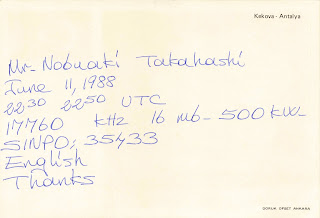 Kekova - Antalya
Mr. Nobuaki Takahashi
June 11, 1988
22³⁰ 22⁵⁰ UTC
17760 kHz 16 mb - 500 kW-
SINPO: 35433
English
Thanks
DORUK OFSET ANKARA